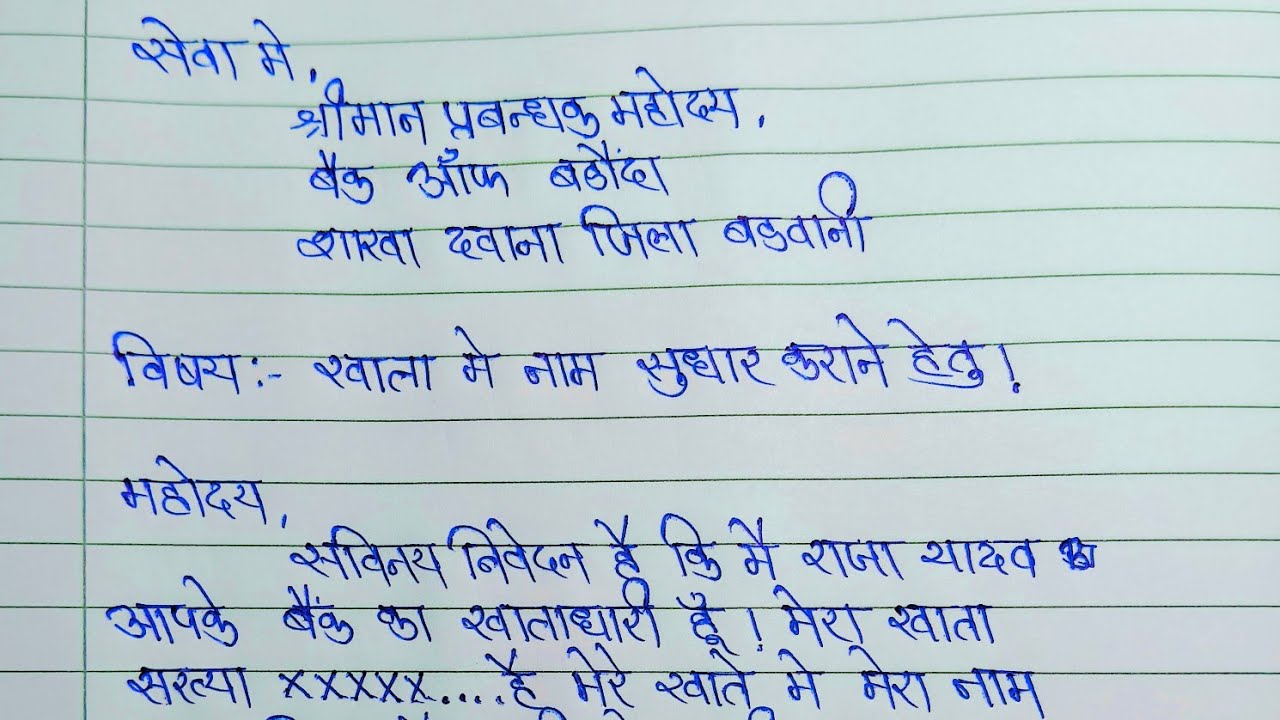 सेवा मे,
श्रीमान प्रबन्धक महोदय,
बैक ऑफ बडौंदा
शाखा दवाना जिला बडवानी
विषय:- खाता मे नाम सुधार कराने हेतु!
महोदय,
सविनय निवेदन है कि मै राजा यादव
आपके बैंक का खाताधारी हूँ! मेरा खाता
सख्या xxxxx....है मेरे खाते मे मेरा नाम